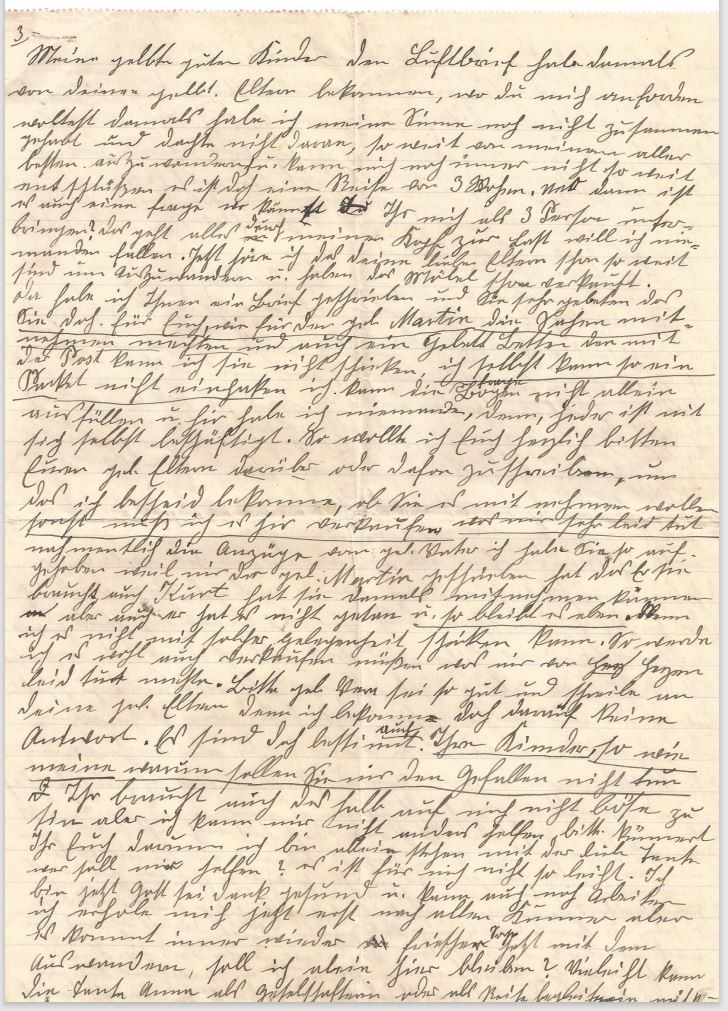 3.
Meine gelbte guten Kinder den Luftbrief habe damals
von deinen gelbt. Eltern bekommen, wo du mich anforden
wolltest damals habe ich meine Sinne noch nicht zusammen
gehabt und dachte nicht daran, so weit von meinen aller
besten auszuwandern u. kann mich noch immer nicht so weit
entschlüßen es ist doch eine Reise von 3 Wochen. Und dann ist
es auch eine frage Ihr mich als 3 Person unter-
bringen? das geht alles durch meinen Kopf zur Last will ich nie-
manden fallen. Jetzt höre ich das deine lieben Eltern schon so weit
sind um Auszuwandern u. haben das Möbel schon verkauft.
Da habe ich Ihnen ein Brief geschrieben und Sie sehr gebeten das
Sie doch für Euch, wie für den gel. Martin die Sachen mit-
nehmen mechten und auch ein Gebett Betten den mit
der Post kann ich sie nicht schicken, ich selbst kann so ein
Packet nicht ein ich kann die frage Bogen nicht allein
ausfüllen u. hir habe ich niemanden, denn, jeder ist mit
sich selbst beschäftigt. So wollte ich Euch herzlich bitten
Euren gel. Eltern darüber oder dafon zuschreiben, um
das ich bescheid bekomme, ob Sie es mit nehmen wollen
sonst muß ich es hir verkaufen was mir sehr leid tut
nahmentlich die Anzüge vom gel. Vater ich habe Sie so auf-
gehoben weil mir der gel. Martin geschrieben hat das Er sie
braucht auch Kurt hat sie damals mitnehmen können
aber auch er hat es nicht getan u. so bleibt es eben Wenn
ich es nicht mit solcher gelegenheit schiken kann. So werde
ich es wohl auch verkaufen müßen was mir von Herzen
leid tut mechte. Bitte gel. Vera sei so gut und schreibe an
deine gel. Eltern denn ich bekomme doch darauf keine
Antwort. Es sind doch bestimmt auch Ihre Kinder, so wie
meine warum sollen Sie mir den Gefallen nicht tun
Ihr braucht auch des halb auf mich nicht böse zu
sein aber ich kann mir nicht anders helfen, bitte kümert
Ihr Euch darum ich bin allein stehen mit der lieben Tante
wer soll mir helfen? es ist für mich nicht so leicht. Ich
bin jetzt Gott sei dank gesund u. kann auch noch Arbeiten
ich erhole mich jetzt erst nach allen Kummer aber
es kommt immer wieder jetzt mit dem
Auswandern, soll ich alein hier bleiben? Vieleicht kann
die Tante Anna als Geselschafterin oder als Reise begleiterin